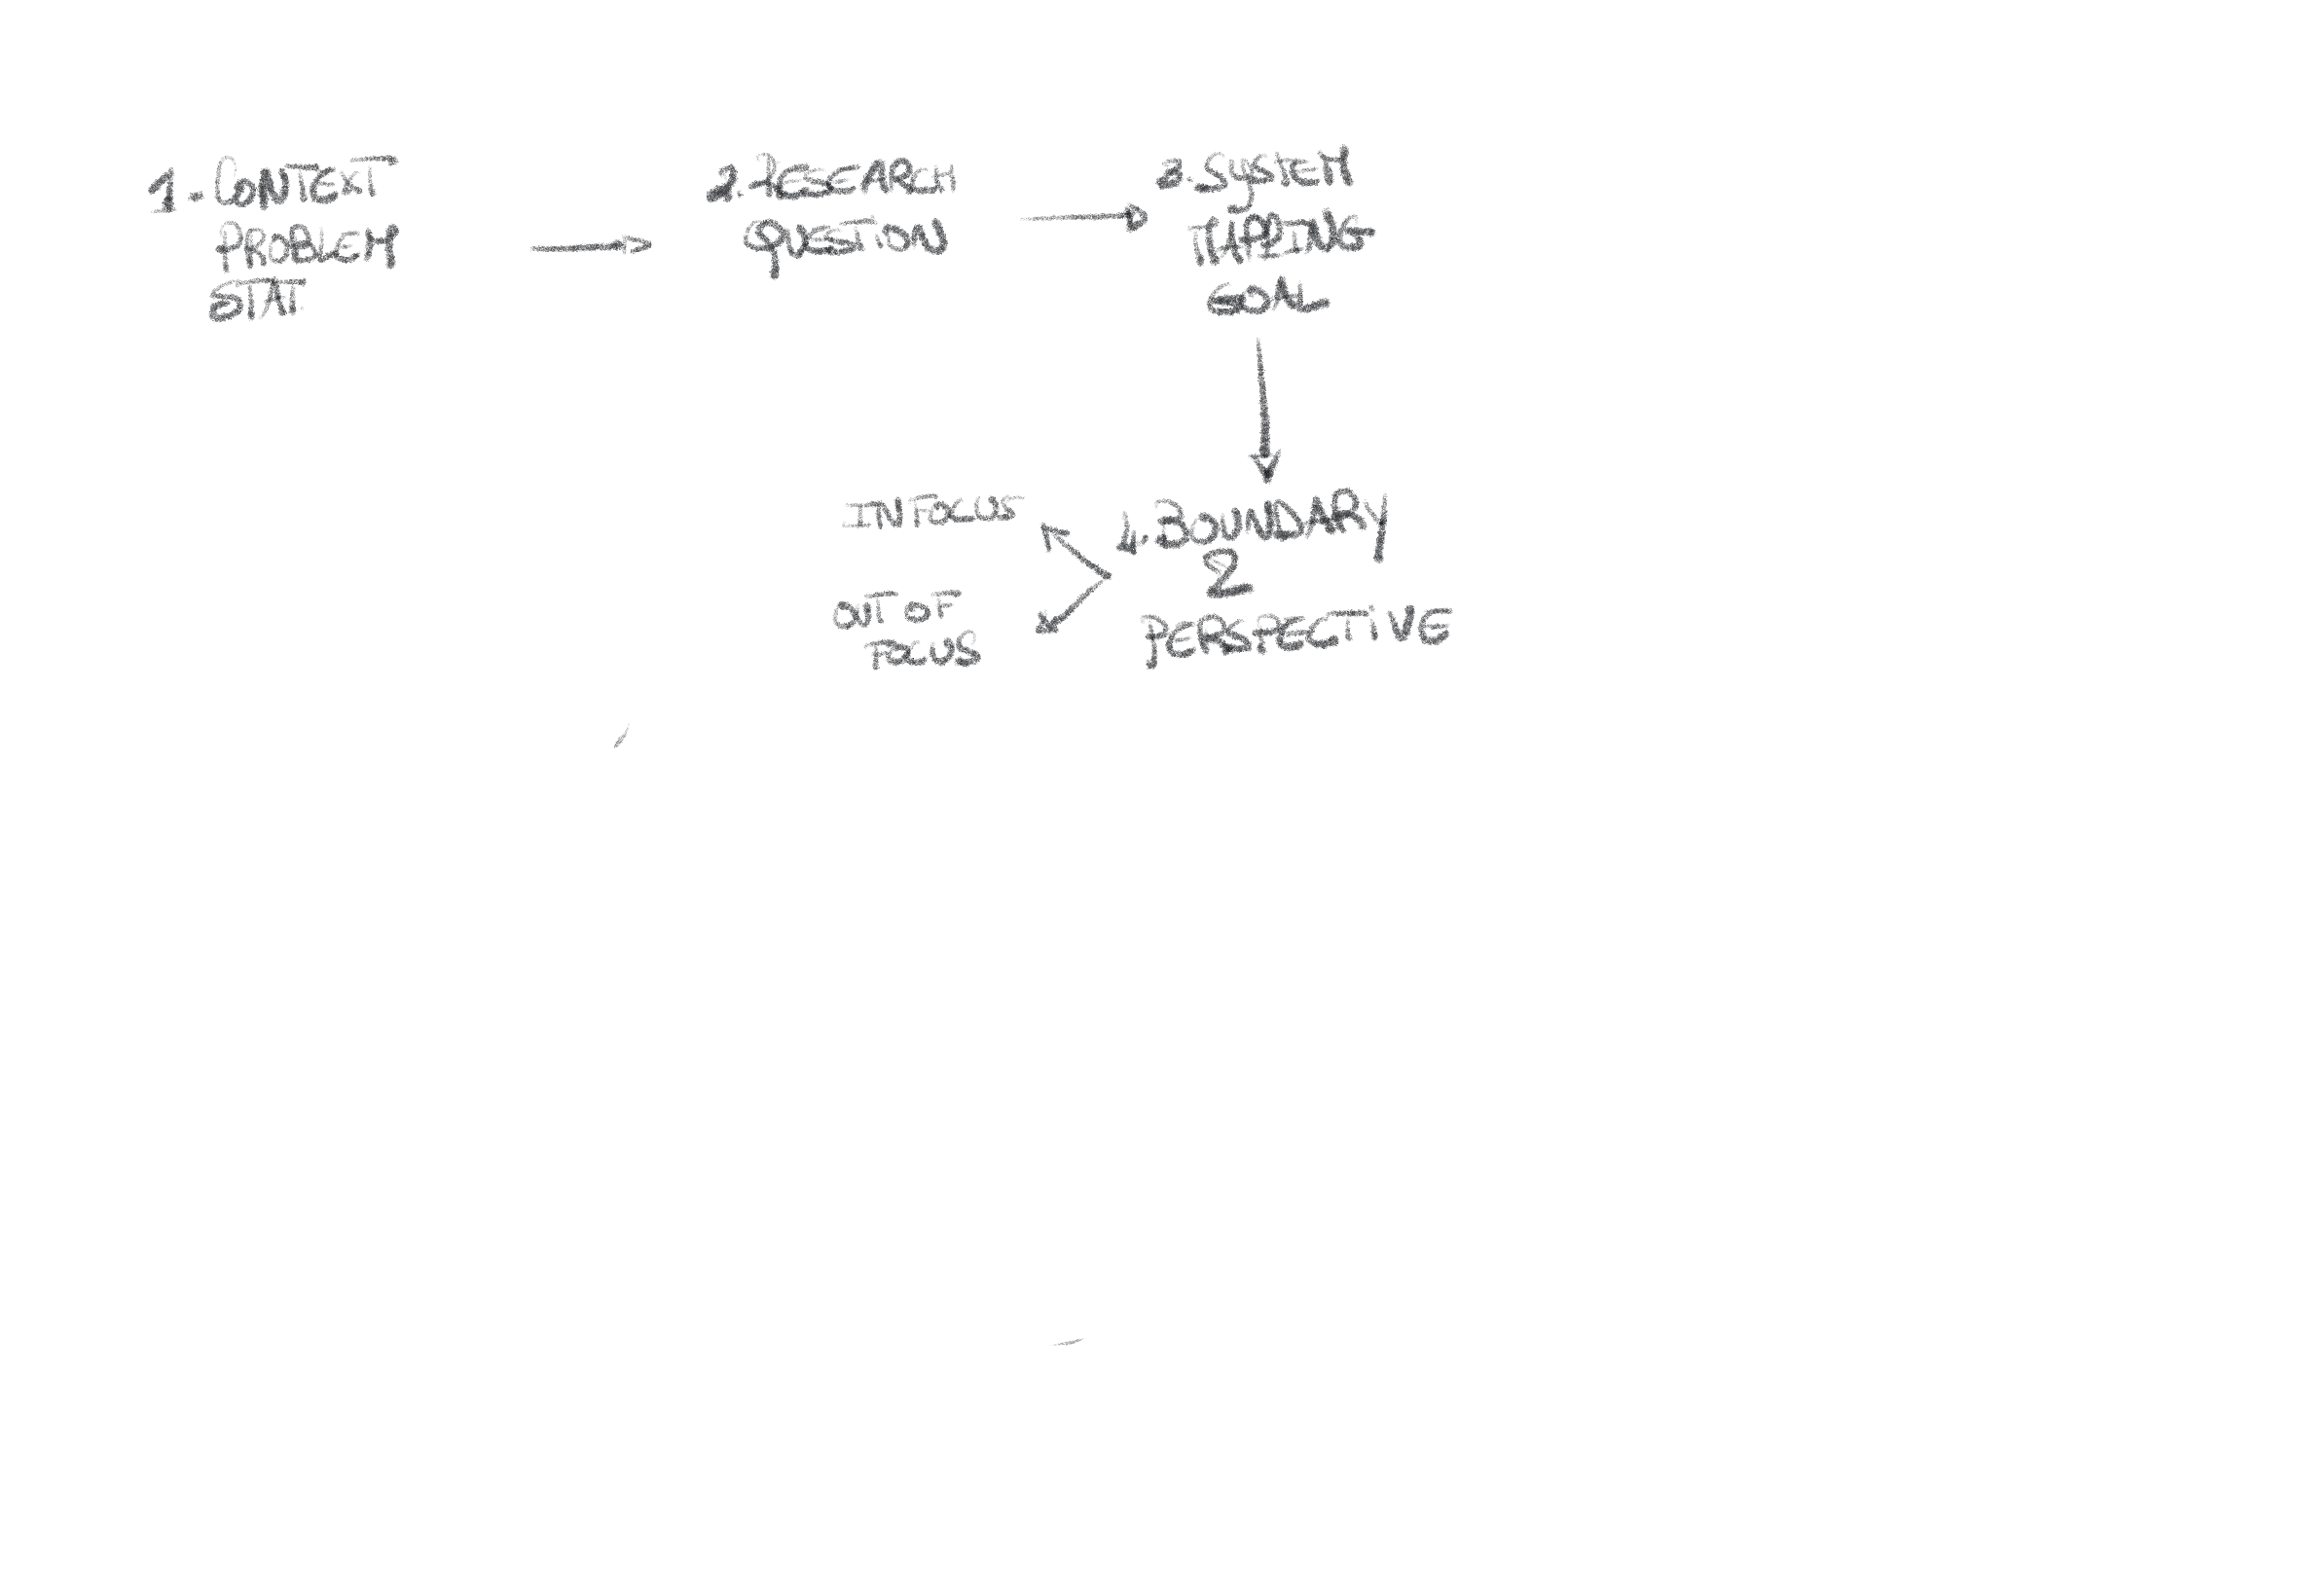 1. CONTEXT
PROBLEM
STAT
2. RESEARCH
QUESTION
3. SYSTEM
MAPPING
GOAL
4. BOUNDARY
2
PERSPECTIVE
IN FOCUS
OUT OF
FOCUS